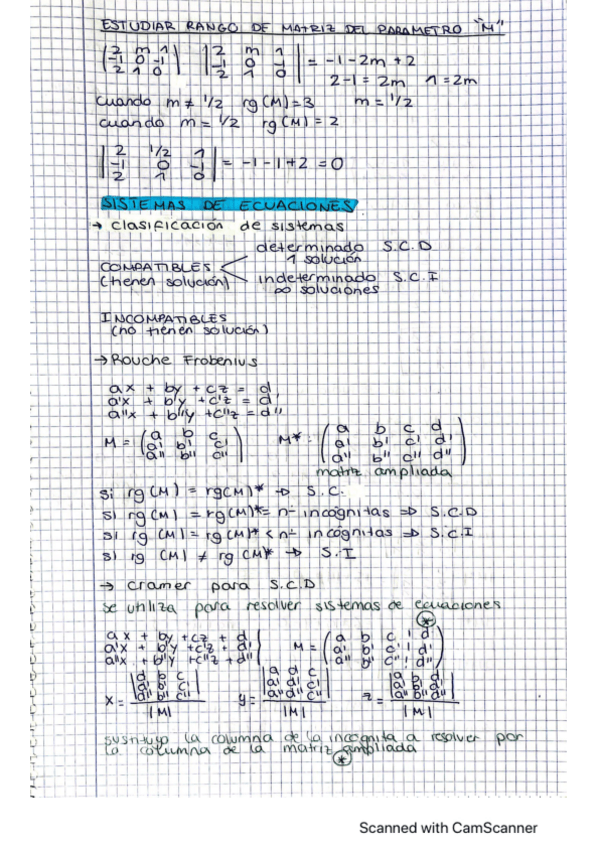 ESTUDIAR RANGO DE MATRIZ DEL PARAMETRO "M"
(2 m 1 | 2 m 1 | = -1-2m+2
-1 0 -1 -1 0 -1 2-1=2m 1=2m
2 1 0) 2 1 0
cuando m ≠ 1/2 rg(M)=3 m=1/2
cuando m = 1/2 rg(M)=2
| 2 1/2 1 |
| -1 0 -1 | = -1-1+2=0
| 2 1 0 |
SISTEMAS DE ECUACIONES
→ clasificación de sistemas
determinado S.C.D
1 solución
COMPATIBLES
(tienen solución) indeterminado S.C.I
∞ soluciones
INCOMPATIBLES
(no tienen solución)
→ Rouche Frobenius
ax + by + cz = d
a'x + b'y + c'z = d'
a''x + b''y + c''z = d''
M = (a b c M*: (a b c d
a' b' c' a' b' c' d'
a'' b'' c'') a'' b'' c'' d'')
matriz ampliada
si rg(M) = rg(M)* ⇒ S.C.
si rg(M) = rg(M)* = nº incógnitas ⇒ S.C.D
si rg(M) = rg(M)* < nº incógnitas ⇒ S.C.I
si rg(M) ≠ rg(M)* ⇒ S.I
→ cramer para S.C.D
se utiliza para resolver sistemas de ecuaciones
*
ax + by + cz + d M = (a b c | d
a'x + b'y + c'z + d' a' b' c' | d'
a''x + b''y + c''z + d'' a'' b'' c'' | d'')
|d b c| |a d c| |a b d|
|d' b' c'| |a' d' c'| |a' b' d'|
x = |d'' b'' c''| y = |a'' d'' c''| z = |a'' b'' d''|
|M| |M| |M|
sustituyo la columna de la incognita a resolver por
la columna de la matriz ampliada
*
Scanned with CamScanner